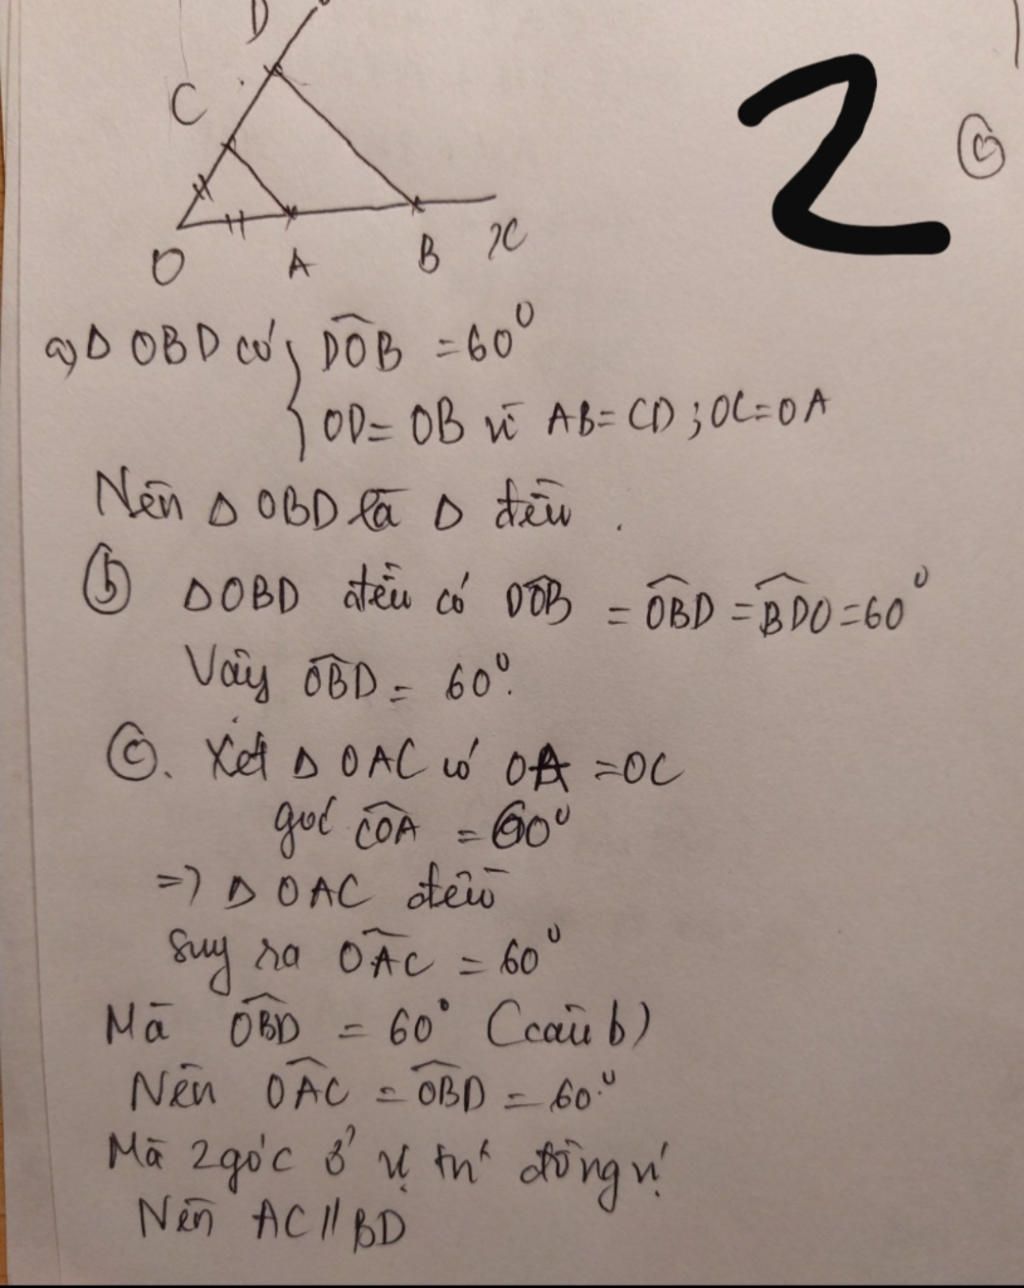 D
C
2
c
O A B x
a) Δ OBD có { D̂OB = 60⁰
OD = OB vì AB = CD ; OC = OA
Nên Δ OBD là Δ đều .
b ΔOBD đều có DÔB = OB̂D = BD̂O = 60⁰
Vậy OB̂D = 60⁰.
c. Xét Δ OAC có OA = OC
góc CÔA = 60⁰
=> Δ OAC đều
suy ra OÂC = 60⁰
Mà OB̂D = 60⁰ (câu b)
Nên OÂC = OB̂D = 60⁰
Mà 2 góc ở vị trí đồng vị
Nên AC // BD